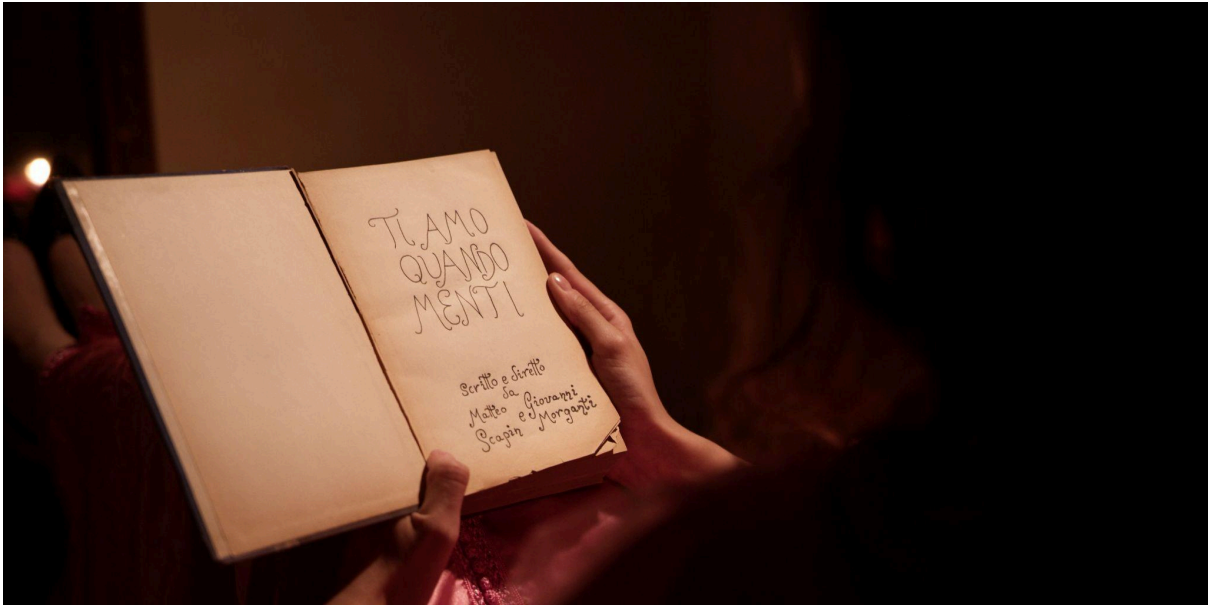 TI AMO
QUANDO
MENTI
Scritto e diretto
da
Matteo e Giovanni
Scapin Morganti